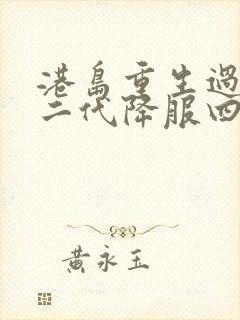 港島重生過
二代降服四
黃永玉